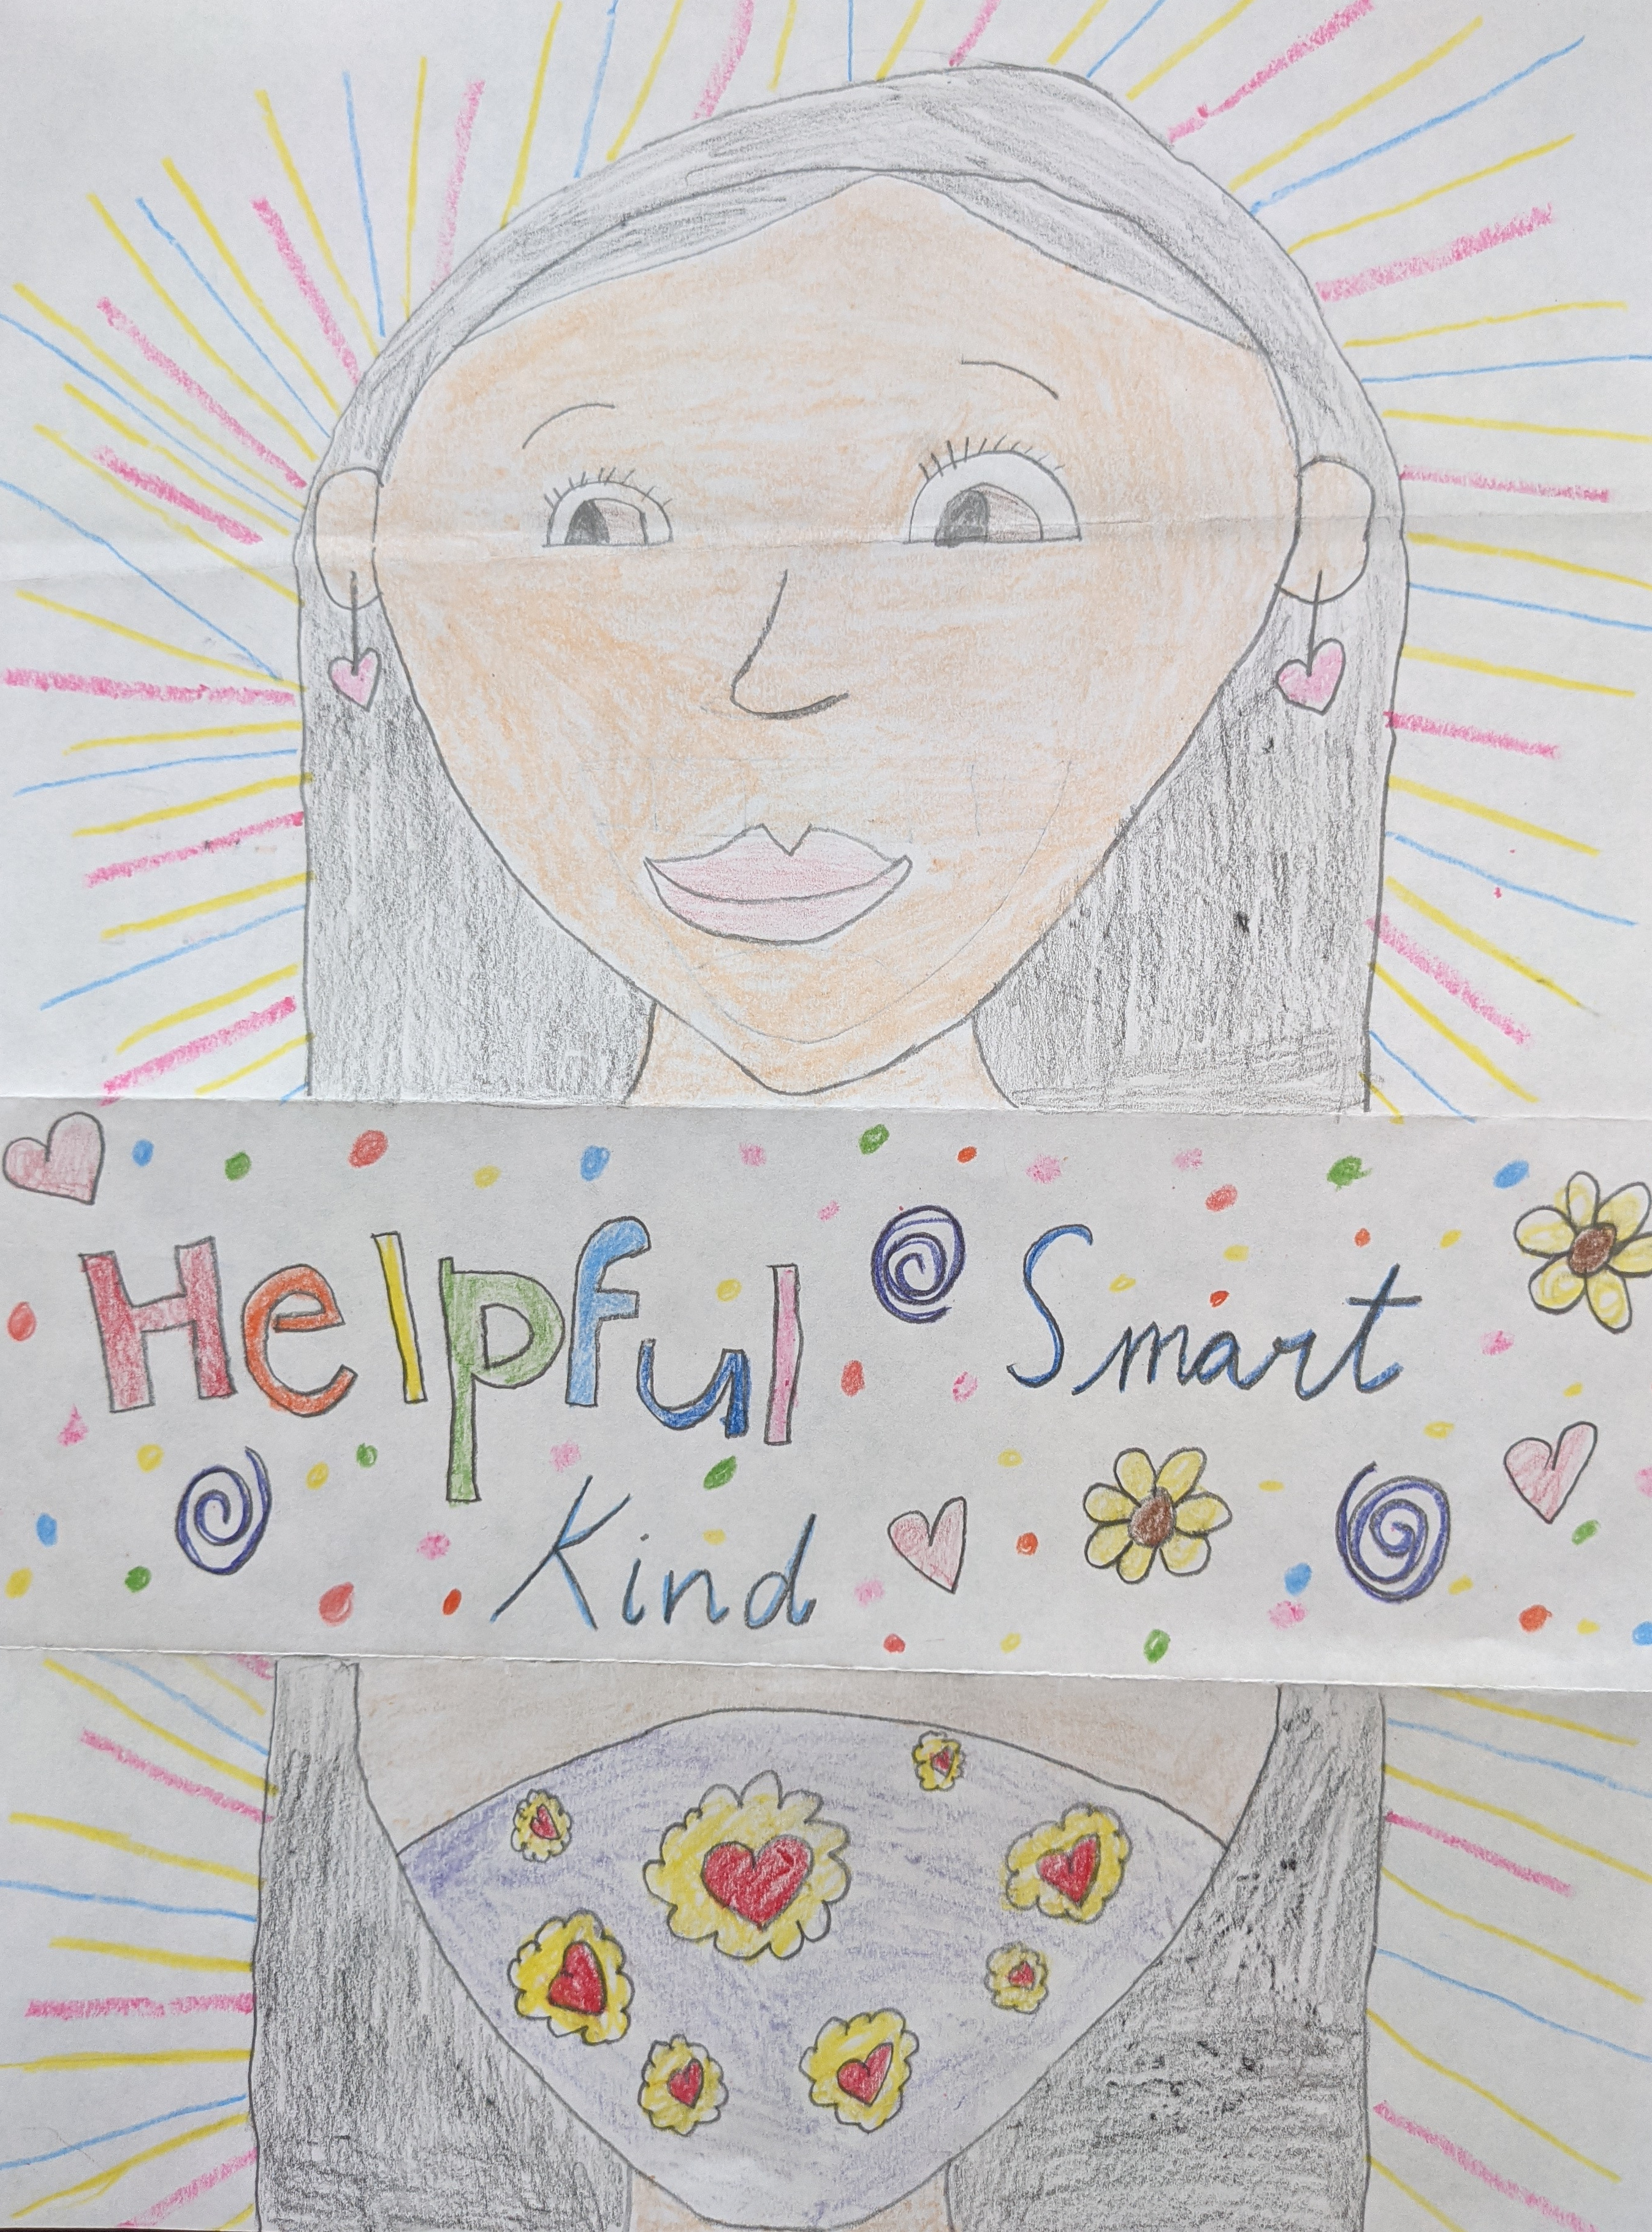 Helpful Smart
Kind